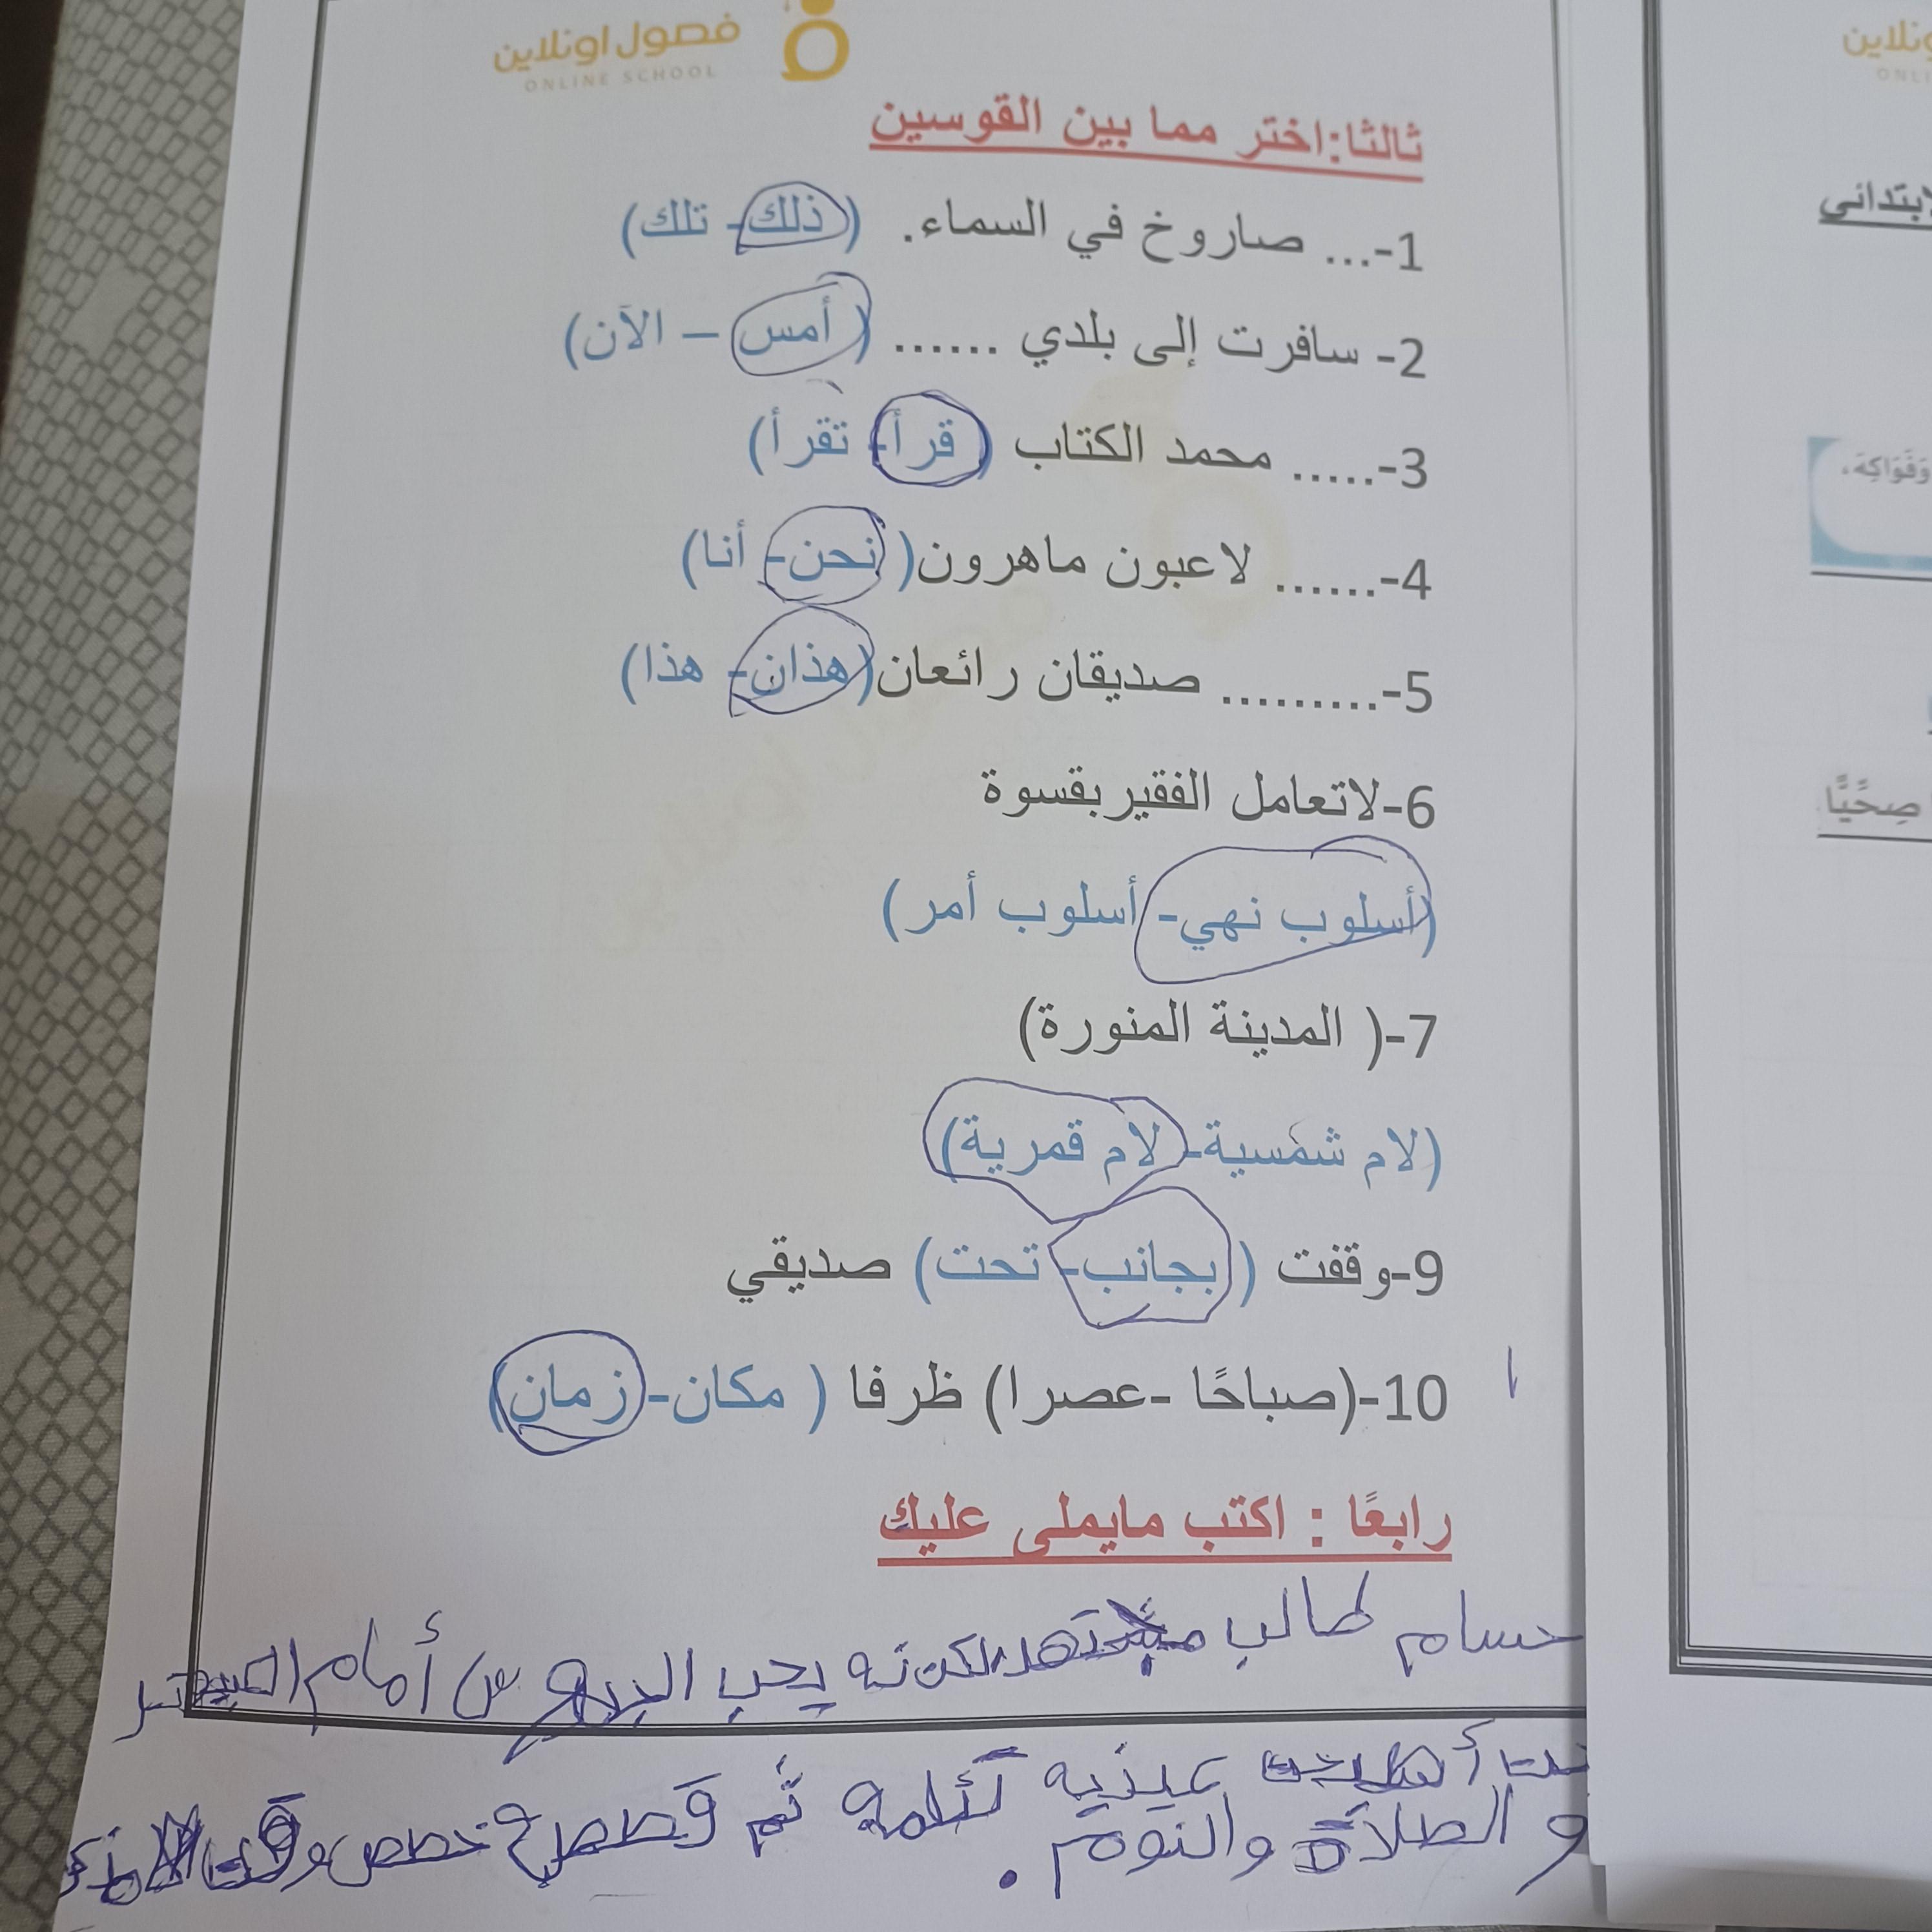 فصول اونلاين
ONLINE SCHOOL
ثالثا:اختر مما بين القوسين
1-... صاروخ في السماء. (ذلك- تلك)
2- سافرت إلى بلدي ...... (أمس – الآن)
3-..... محمد الكتاب (قرأ- تقرأ)
4-...... لاعبون ماهرون( نحن- أنا)
5-......... صديقان رائعان(هذان- هذا)
6-لاتعامل الفقير بقسوة
(أسلوب نهي- أسلوب أمر)
7-( المدينة المنورة)
(لام شمسية- لام قمرية)
9-وقفت ( بجانب- تحت) صديقي
10-(صباحًا -عصرا) ظرفا ( مكان- زمان)
رابعًا : اكتب مايملى عليك
حسام طالب يحب أمام
عينيه ثم خصص
و الصلاة والنوم .
ونلاين
ONLI
لابتدائي
وَفَوَاكِهَ،
صِحِّيًّا